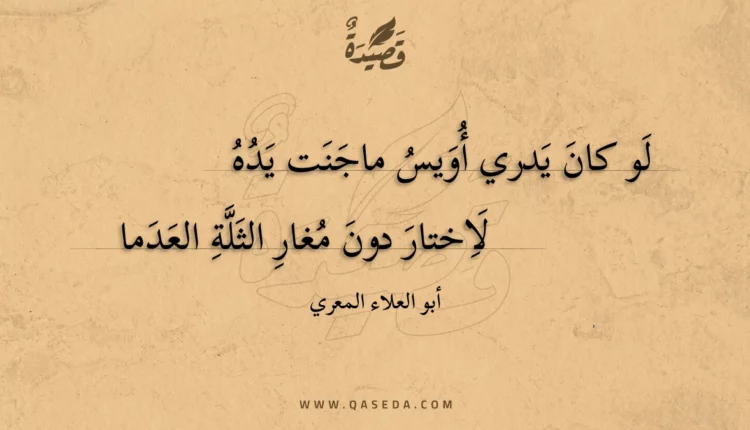 قَصِيدَةٌ
لَو كانَ يَدري أُوَيسُ ماجَنَت يَدُهُ
لَاِختارَ دونَ مُغارِ الثَلَّةِ العَدَما
أبو العلاء المعري
WWW.QASEDA.COM